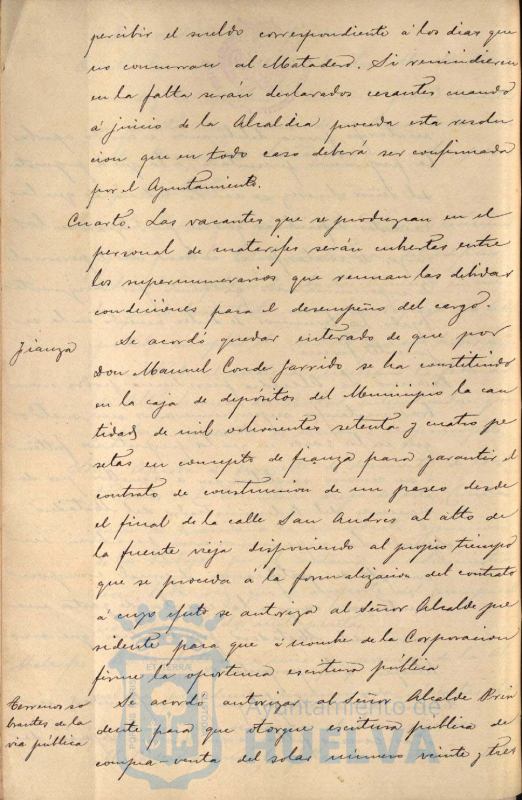 percibir el sueldo correspondiente á los dias que
no concurran al Matadero. Si reincidieren
en la falta serán declarados cesantes cuando
á juicio de la Alcaldia proceda esta resolu
cion que en todo caso deberá ser confirmada
por el Ayuntamiento.
Cuarto. Las vacantes que se produzcan en el
personal de matarifes serán cubiertas entre
los supernumerarios que reunan las debidas
condiciones para el desempeño del cargo.
Fianza
Se acordó quedar enterado de que por
Don Manuel Conde Garrido se ha constituido
en la caja de depósitos del Municipio la can
tidad de mil ochocientas setenta y cuatro pe
setas en concepto de fianza para garantir el
contrato de construccion de un paseo desde
el final de la calle San Andrés al alto de
la fuente vieja disponiendo al propio tiempo
que se proceda á la formalizacion del contrato
á cuyo efecto se autoriza al Señor Alcalde pre
sidente para que á nombre de la Corporacion
firme la oportuna escritura pública
Terrenos so
brantes de la
via pública
Se acordó autorizar al Señor Alcalde Presi
dente para que otorgue escritura publica de
compra-venta del solar número veinte y tres
Ayuntamiento de
HUELVA